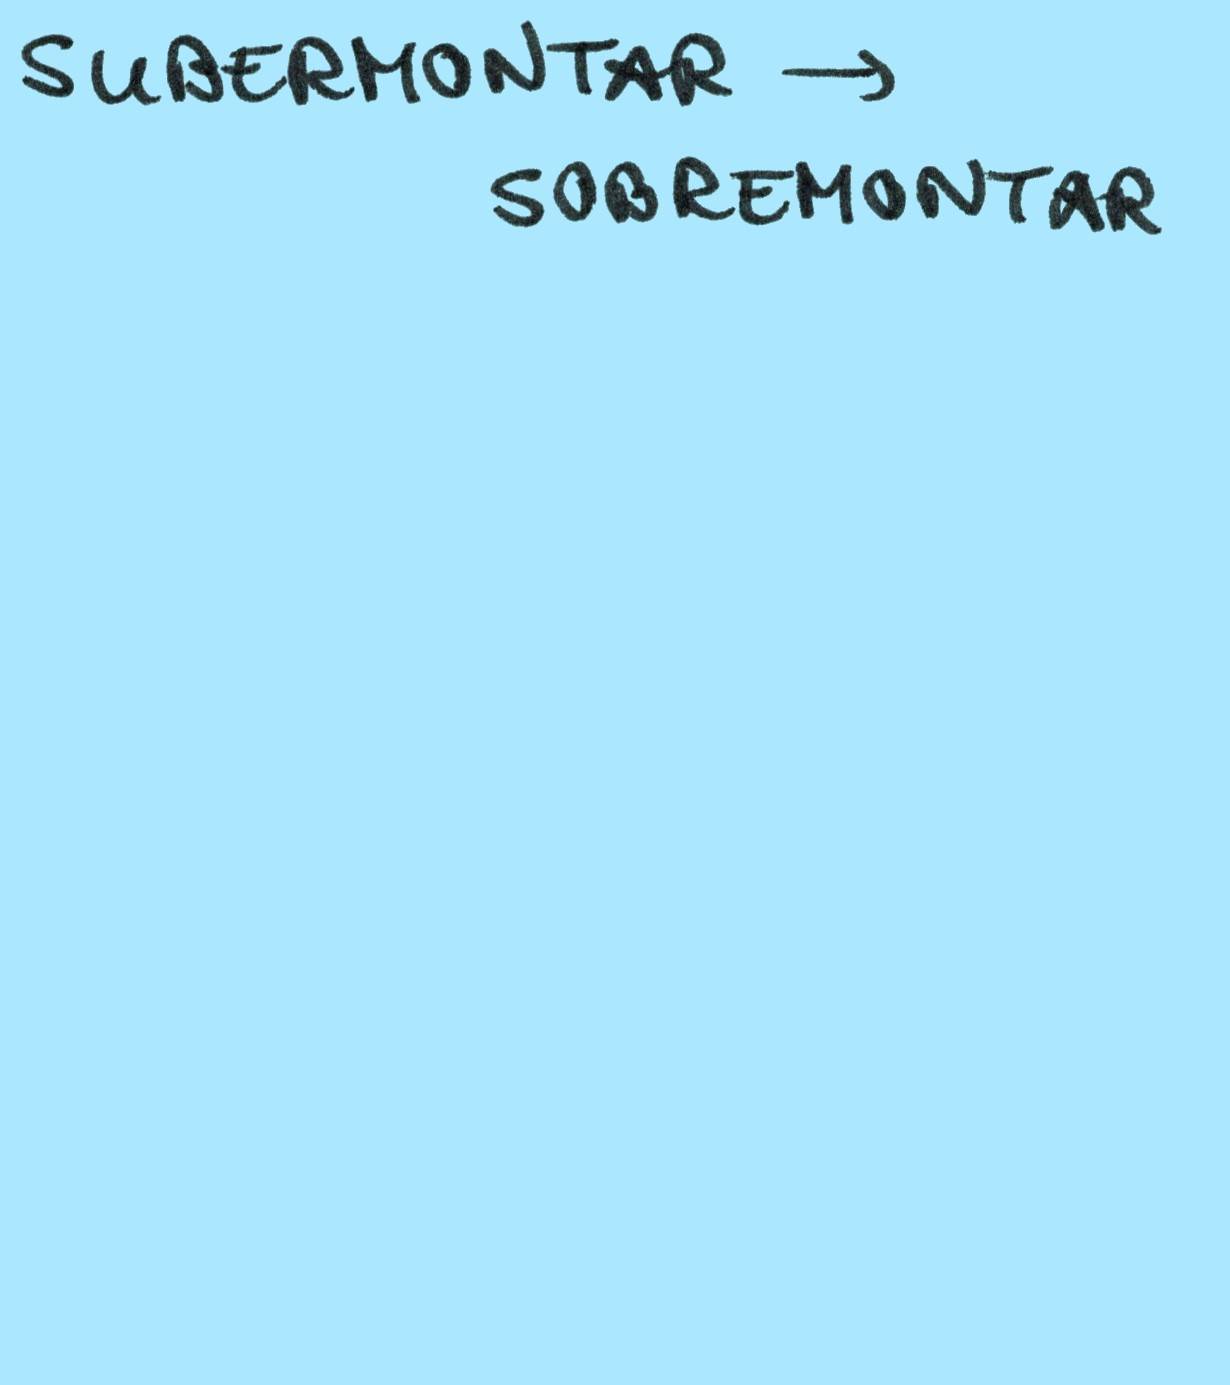 SUBERMONTAR →
SOBREMONTAR